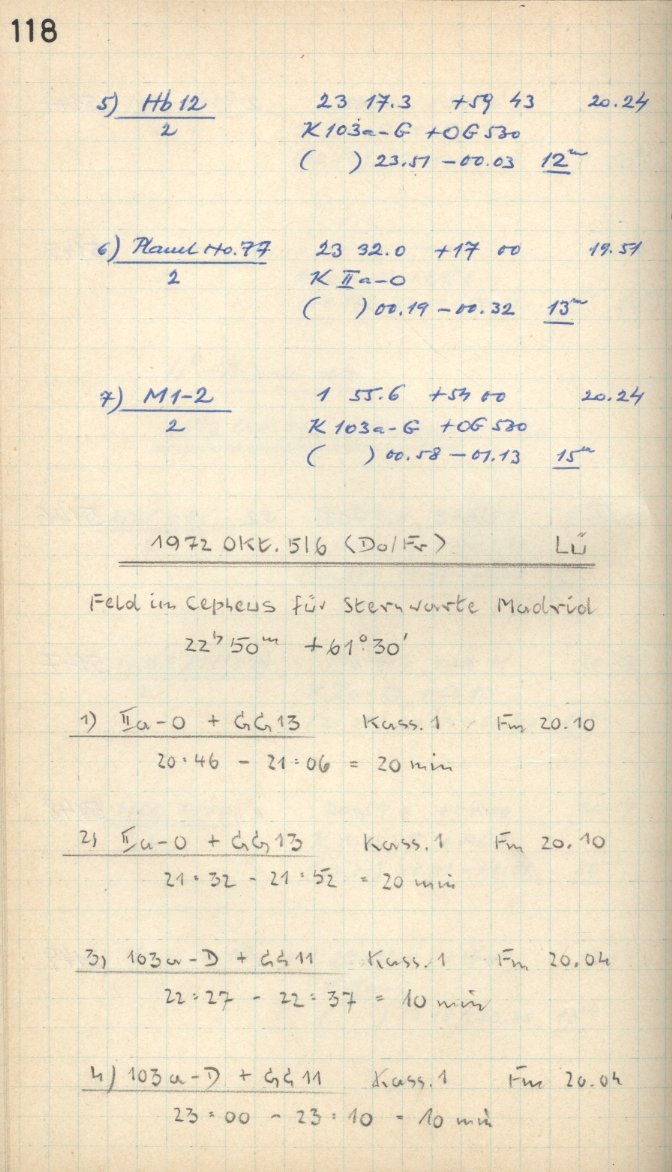 118
5) Hb 12 23 17.3 +59 43 20.24
2 K 103a-G +OG 530
( ) 23.51 - 00.03 12ᵐ
6) Planet No. 77 23 32.0 +17 00 19.51
2 K IIa-O
( ) 00.19 - 00.32 13ᵐ
7) M1-2 1 55.6 +54 00 20.24
2 K 103a-G +OG 530
( ) 00.58 - 01.13 15ᵐ
1972 OKT. 5/6 (Do/Fr) Lü
Feld im Cepheus für Sternwarte Madrid
22ʰ 50ᵐ +61° 30'
1) IIa-O + GG13 Kass. 1 Fm 20.10
20:46 - 21:06 = 20 min
2) IIa-O + GG13 Kass. 1 Fm 20.10
21:32 - 21:52 = 20 min
3) 103a-D + GG11 Kass. 1 Fm 20.04
22:27 - 22:37 = 10 min
4) 103a-D + GG11 Kass. 1 Fm 20.04
23:00 - 23:10 = 10 min